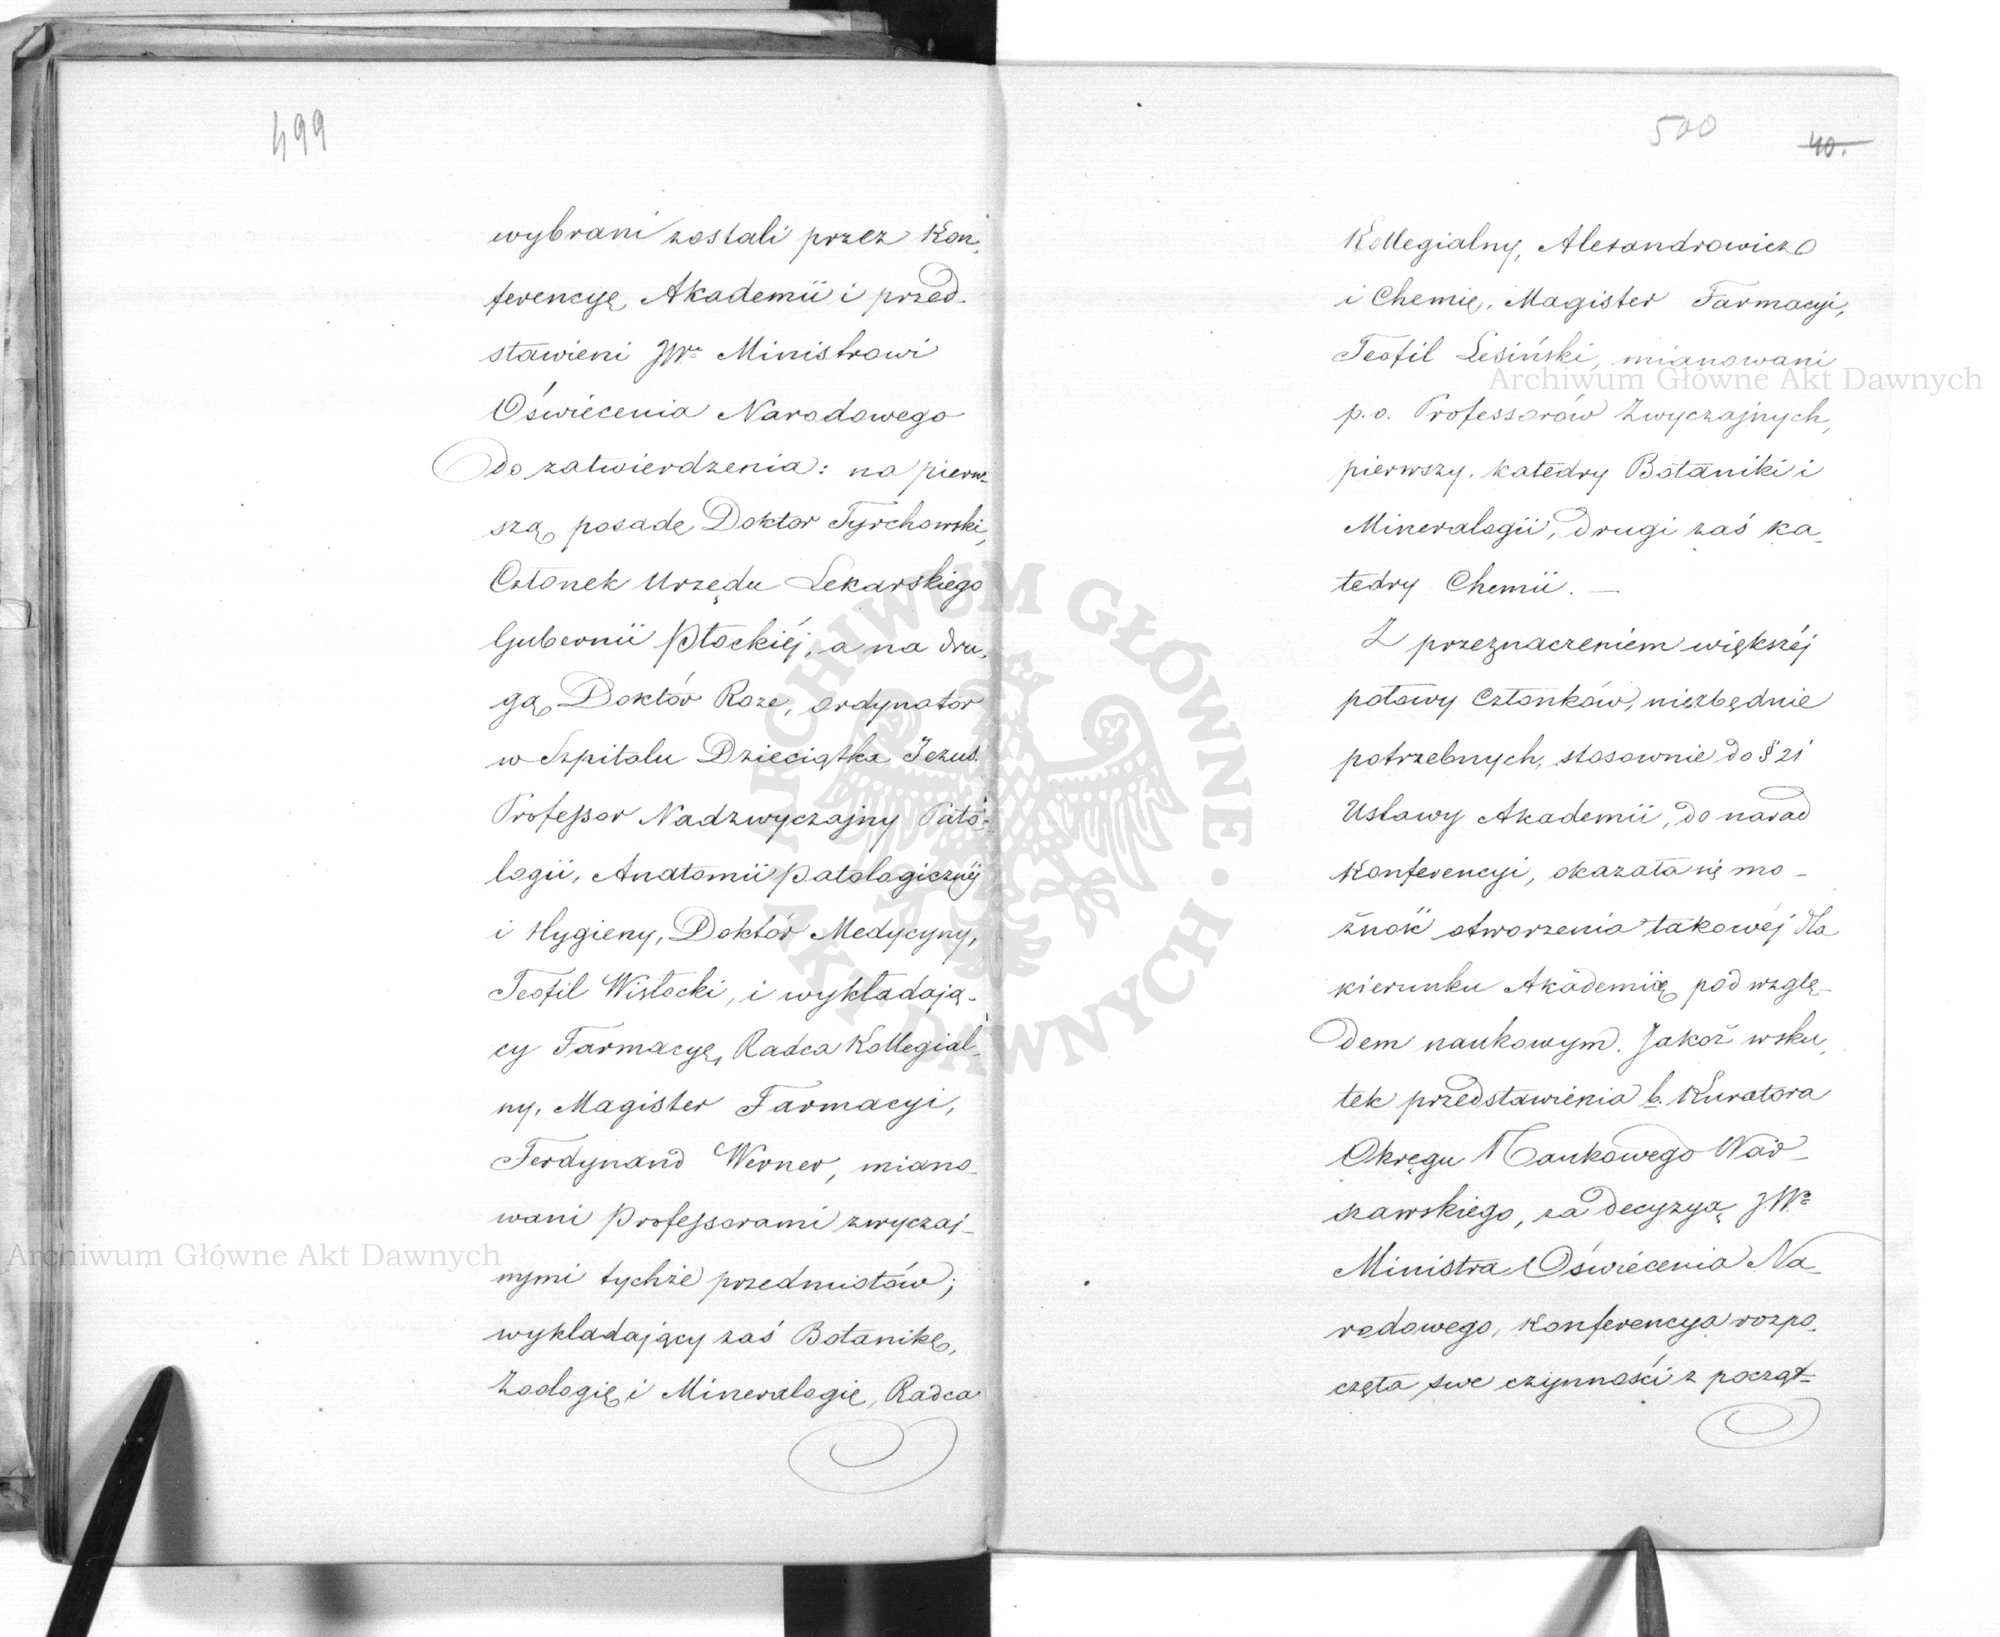 499
wybrani zostali przez Kon-
ferencyę Akademii i przed-
stawieni JWu Ministrowi
Oświecenia Narodowego
do zatwierdzenia: na pierw-
szą posadę Doktor Tyrchowski,
Członek Urzędu Lekarskiego
Gubernii Płockiéj, a na dru-
gą Doktór Roze, ordynator
w Szpitalu Dzieciątka Jezus.
Professor Nadzwyczajny Pato-
logii, Anatomii patologicznéj
i Hygieny, Doktór Medycyny,
Teofil Wisłocki, i wykładają-
cy Farmacyę, Radca Kollegial-
ny, Magister Farmacyi,
Ferdynand Werner, miano-
wani Professorami zwyczaj-
nymi tychże przedmiotów;
wykładający zaś Botanikę,
Zoologię i Mineralogię, Radca
500 40.
Kollegialny, Alexandrowicz
i Chemię, Magister Farmacyi,
Teofil Lesiński, mianowani
p.o. Professorów Zwyczajnych,
pierwszy katedry Botaniki i
Mineralogii, drugi zaś ka-
tedry Chemii. —
Z przeznaczeniem większéj
połowy Członków, niezbędnie
potrzebnych, stosownie do § 21
Ustawy Akademii, do narad
Konferencyi, okazała się mo-
żność otworzenia takowéj dla
kierunku Akademiię pod wzglę-
dem naukowym. Jakoż wsku-
tek przedstawienia b. Kuratora
Okręgu Naukowego War-
szawskiego, za decyzyą JWo
Ministra Oświecenia Na-
rodowego, Konferencya rozpo-
częła swe czynności z począt-
Archiwum Główne Akt Dawnych
Archiwum Główne Akt Dawnych
ARCHIWUM GŁÓWNE • AKT DAWNYCH •